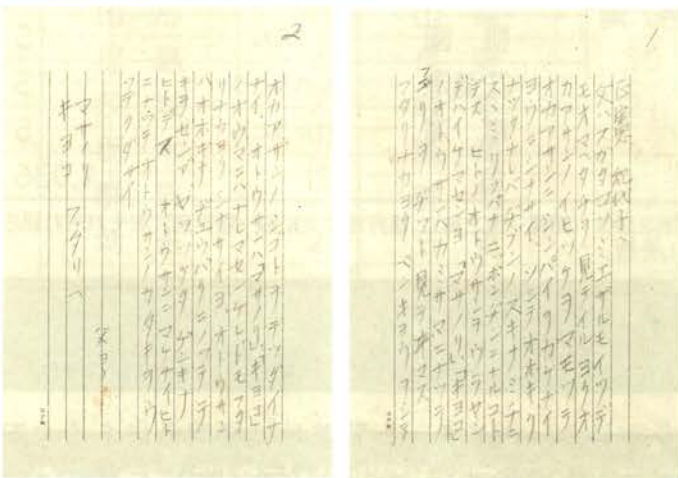 1
正憲、紀代子へ
父ハスガタコソミエザルモイツデ
モオマヘタチヲ見テイル。ヨクオ
カアサンノイヒツケヲマモツテ
オカアサンニシンパイヲカケナイ
ヨウニシナサイ。ソシテオオキク
ナツタナレバ、ヂブンノスキナミチニ
ススミ、リッパナニッポンジンニナルコト
デス。ヒトノオトウサンヲウラヤン
デハイケマセンヨ。「マサノリ」「キヨコ」
ノオトウサンハカミサマニナツテ
フタリヲヂット見テヰマス。
フタリナカヨクベンキョウヲシテ
2
オカアサンノシゴトヲテツダイナ
サイ。オトウサンハ「マサノリ」「キヨコ」
ノオウマニハナレマセンケレドモ、フタ
リナカヨクシナサイヨ。オトウサン
ハオオキナジュウバクニノッテ、テ
キヲゼンブヤッツケタゲンキナ
ヒトデス。オトウサンニマケナイヒト
ニナッテ、オトウサンノカタキヲウ
ッテクダサイ
マサノリ
キヨコ フタリヘ
父ヨリ